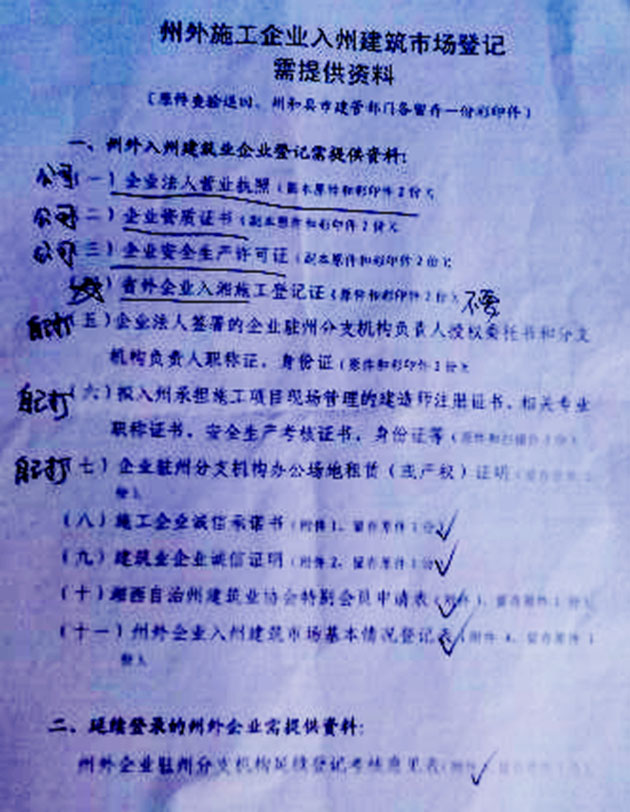 州外施工企业入州建筑市场登记
需提供资料
（原件查验退回、州和县市建管部门各留存一份彩印件）
一、州外入州建筑业企业登记需提供资料：
公司（一）企业法人营业执照（副本原件和彩印件2份）；
公司（二）企业资质证书（副本原件和彩印件2份）；
公司（三）企业安全生产许可证（副本原件和彩印件2份）；
）省外企业入湘施工登记证（原件和彩印件2份）不要
自己打（五）企业法人签署的企业驻州分支机构负责人授权委托书和分支
机构负责人职称证、身份证（原件和彩印件2份）；
自己打（六）拟入州承担施工项目现场管理的建造师注册证书、相关专业
职称证书、安全生产考核证书、身份证等（原件和彩印件2份）
自己打（七）企业驻州分支机构办公场地租赁（或产权）证明（留存原件1
份）、
（八）施工企业诚信承诺书（附件1、留存原件1份）
（九）建筑业企业诚信证明（附件2、留存原件1份）
（十）湘西自治州建筑业协会特别会员申请表（附件3、留存原件1份）、
（十一）州外企业入州建筑市场基本情况登记表（附件4、留存原件1
份）、
二、延续登录的州外企业需提供资料：
州外企业驻州分支机构延续登记考核意见表（附件